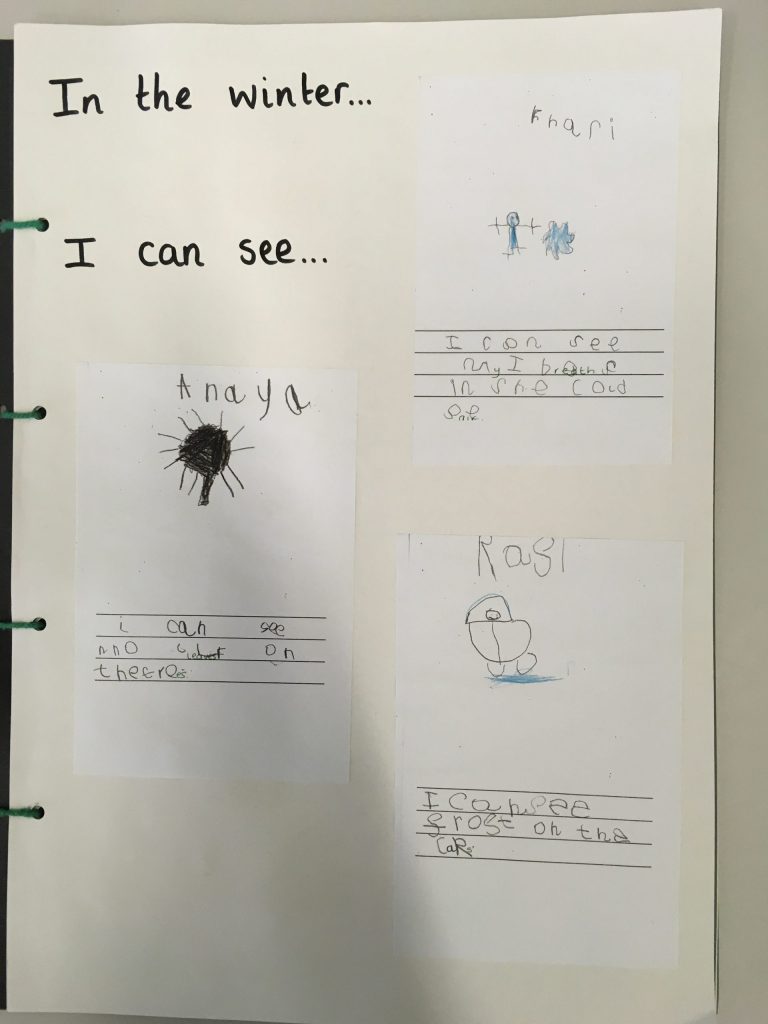 In the winter...
I can see...
Khari
I can see
My I breath
in she cold
Anaya
i can see
nno on
theeres
Kasi
I can see
frost on the
cars